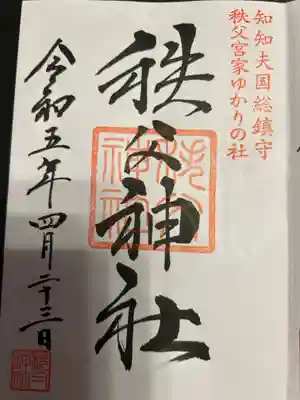 知知夫国総鎮守
秩父宮家ゆかりの社
秩父神社
令和五年四月二十三日
秩父
神社